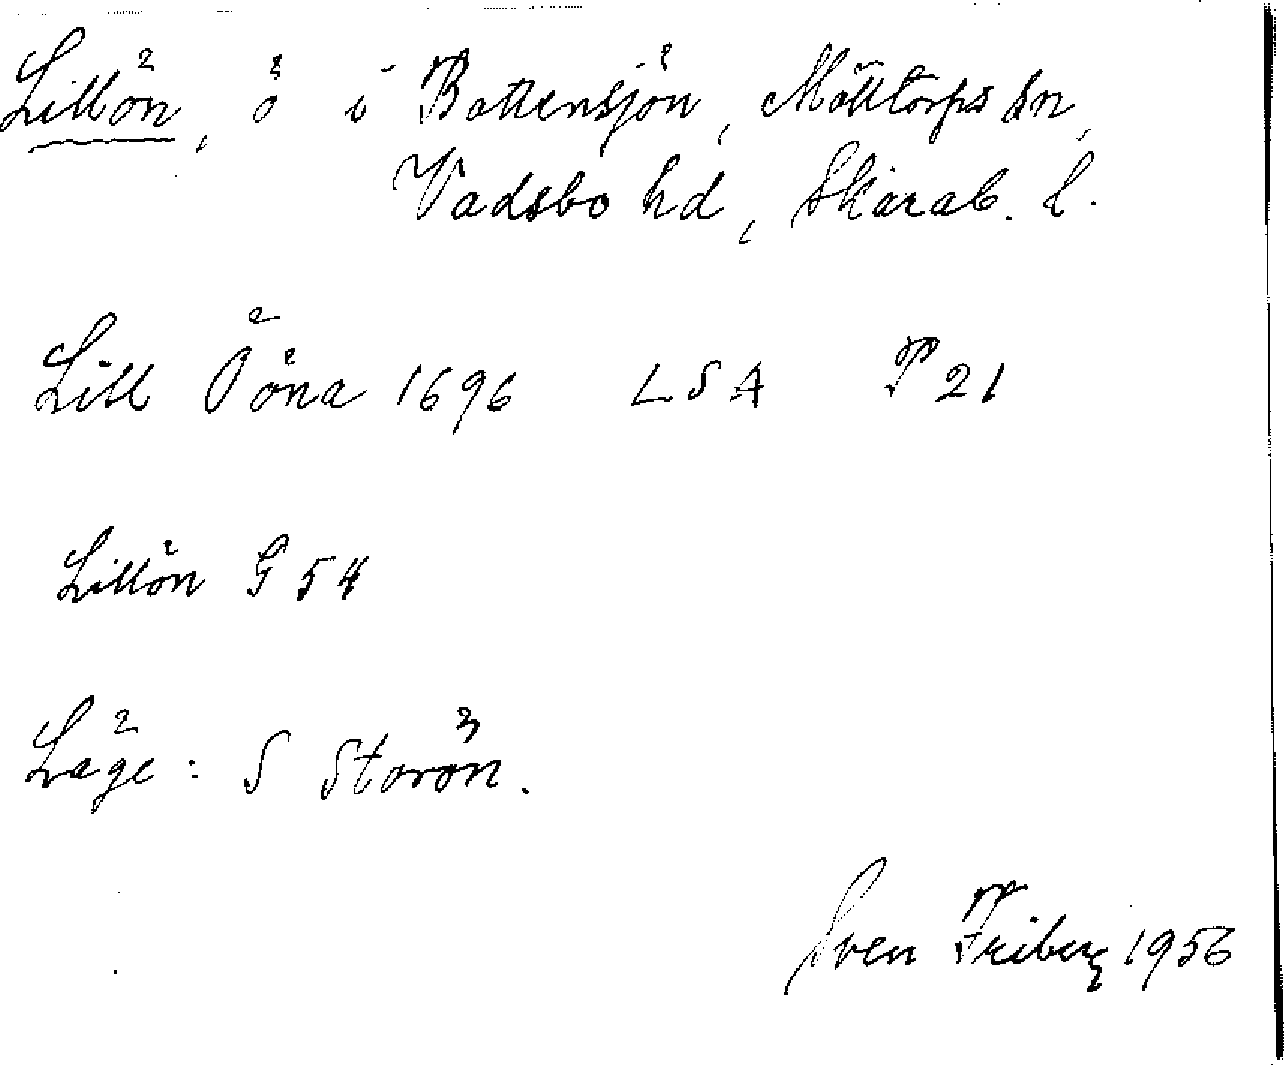 Lillön, ö i Bottensjön, Mölltorps sn,
Vadsbo hd, Skarab. l.
Lill Ööna 1696 LSA P 21
Lillön G 54
Läge: S Storön.
Sven Friberg 1956